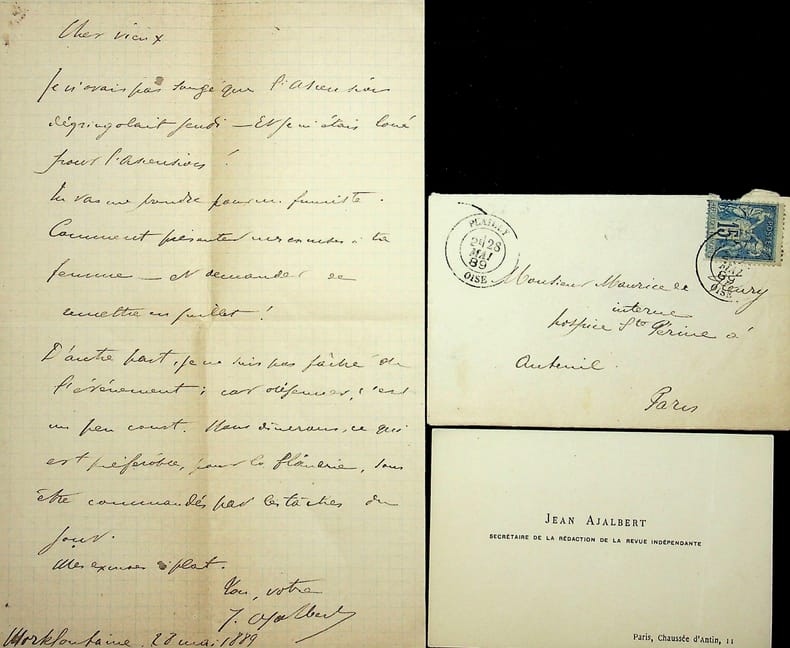 Cher vieux
Je n'avais pas songé que l'Ascension
dégringolait jeudi — Et je m'étais loué
pour l'Ascension !
Tu vas me prendre pour un fumiste.
Comment présenter mes excuses à ta
femme — et demander de
remettre en juillet !
D'autre part, je ne suis pas fâché de
l'événement ; car déjeuner, c'est
un peu court. Nous dînerons, ce qui
est préférable, pour la flânerie, sans
être commandés par les tâches du
jour.
Mes excuses à plat.
Ton, votre
J. Ajalbert
28 mai 1889
PLAILLY
28
MAI
89
OISE
15
MAI
89
OISE
Monsieur Maurice de Fleury
interne
hospice Ste Périne à
Auteuil.
Paris
JEAN AJALBERT
SECRÉTAIRE DE LA RÉDACTION DE LA REVUE INDÉPENDANTE
Paris, Chaussée d'Antin, 11